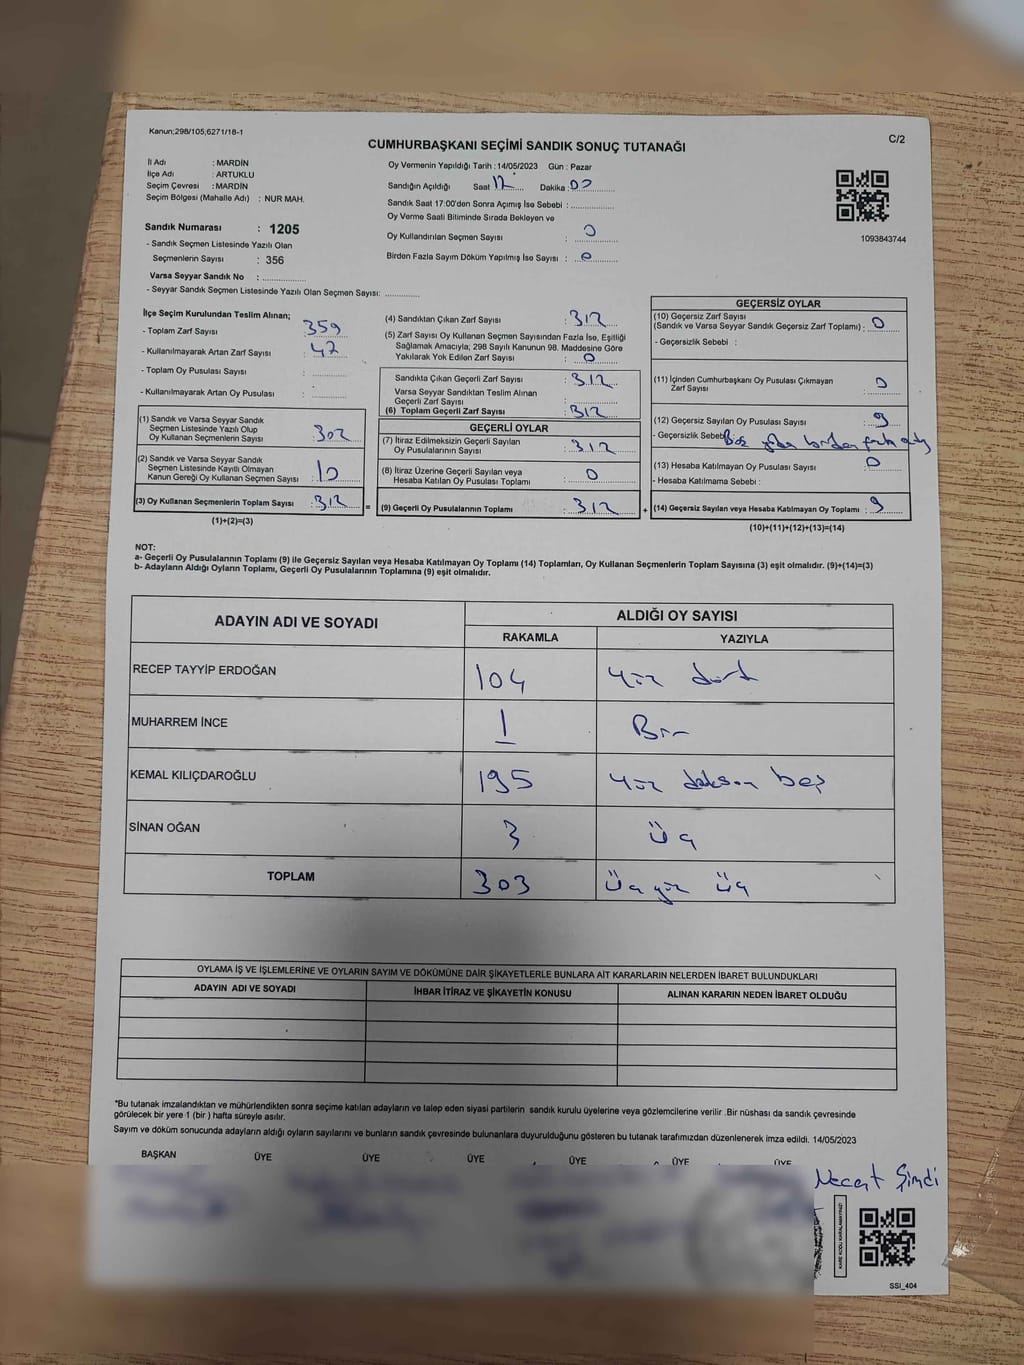 Kanun;298/105;6271/18-1
C/2
CUMHURBAŞKANI SEÇİMİ SANDIK SONUÇ TUTANAĞI
İl Adı : MARDİN
İlçe Adı : ARTUKLU
Seçim Çevresi : MARDİN
Seçim Bölgesi (Mahalle Adı) : NUR MAH.
Sandık Numarası : 1205
- Sandık Seçmen Listesinde Yazılı Olan
Seçmenlerin Sayısı : 356
Varsa Seyyar Sandık No :
- Seyyar Sandık Seçmen Listesinde Yazılı Olan Seçmen Sayısı:
Oy Vermenin Yapıldığı Tarih : 14/05/2023 Gün : Pazar
Sandığın Açıldığı Saat 17 Dakika : 00
Sandık Saat 17:00'den Sonra Açımış İse Sebebi :
Oy Verme Saati Bitiminde Sırada Bekleyen ve
Oy Kullandırılan Seçmen Sayısı : 0
Birden Fazla Sayım Döküm Yapılmış İse Sayısı : 0
1093843744
İlçe Seçim Kurulundan Teslim Alınan;
- Toplam Zarf Sayısı : 359
- Kullanılmayarak Artan Zarf Sayısı : 47
- Toplam Oy Pusulası Sayısı :
- Kullanılmayarak Artan Oy Pusulası :
(1) Sandık ve Varsa Seyyar Sandık
Seçmen Listesinde Yazılı Olup
Oy Kullanan Seçmenlerin Sayısı : 302
(2) Sandık ve Varsa Seyyar Sandık
Seçmen Listesinde Kayıtlı Olmayan
Kanun Gereği Oy Kullanan Seçmen Sayısı : 10
(3) Oy Kullanan Seçmenlerin Toplam Sayısı : 312
(1)+(2)=(3)
=
(4) Sandıktan Çıkan Zarf Sayısı : 312
(5) Zarf Sayısı Oy Kullanan Seçmen Sayısından Fazla İse, Eşitliği
Sağlamak Amacıyla; 298 Sayılı Kanunun 98. Maddesine Göre
Yakılarak Yok Edilen Zarf Sayısı : 0
Sandıkta Çıkan Geçerli Zarf Sayısı : 312
Varsa Seyyar Sandıktan Teslim Alınan
Geçerli Zarf Sayısı :
(6) Toplam Geçerli Zarf Sayısı : 312
GEÇERLİ OYLAR
(7) İtiraz Edilmeksizin Geçerli Sayılan
Oy Pusulalarının Sayısı : 312
(8) İtiraz Üzerine Geçerli Sayılan veya
Hesaba Katılan Oy Pusulası Toplamı : 0
(9) Geçerli Oy Pusulalarının Toplamı : 312
+
GEÇERSİZ OYLAR
(10) Geçersiz Zarf Sayısı
(Sandık ve Varsa Seyyar Sandık Geçersiz Zarf Toplamı) : 0
- Geçersizlik Sebebi :
(11) İçinden Cumhurbaşkanı Oy Pusulası Çıkmayan
Zarf Sayısı : 0
(12) Geçersiz Sayılan Oy Pusulası Sayısı : 9
- Geçersizlik Sebebi
(13) Hesaba Katılmayan Oy Pusulası Sayısı : 0
- Hesaba Katılmama Sebebi :
(14) Geçersiz Sayılan veya Hesaba Katılmayan Oy Toplamı : 9
(10)+(11)+(12)+(13)=(14)
NOT:
a- Geçerli Oy Pusulalarının Toplamı (9) ile Geçersiz Sayılan veya Hesaba Katılmayan Oy Toplamı (14) Toplamları, Oy Kullanan Seçmenlerin Toplam Sayısına (3) eşit olmalıdır. (9)+(14)=(3)
b- Adayların Aldığı Oyların Toplamı, Geçerli Oy Pusulalarının Toplamına (9) eşit olmalıdır.
ADAYIN ADI VE SOYADI
ALDIĞI OY SAYISI
RAKAMLA YAZIYLA
RECEP TAYYİP ERDOĞAN 104 yüz dört
MUHARREM İNCE 1 Bir
KEMAL KILIÇDAROĞLU 195 yüz doksan beş
SİNAN OĞAN 3 üç
TOPLAM 303 üç yüz üç
OYLAMA İŞ VE İŞLEMLERİNE VE OYLARIN SAYIM VE DÖKÜMÜNE DAİR ŞİKAYETLERLE BUNLARA AİT KARARLARIN NELERDEN İBARET BULUNDUKLARI
ADAYIN ADI VE SOYADI İHBAR İTİRAZ VE ŞİKAYETİN KONUSU ALINAN KARARIN NEDEN İBARET OLDUĞU
*Bu tutanak imzalandıktan ve mühürlendikten sonra seçime katılan adayların ve talep eden siyasi partilerin sandık kurulu üyelerine veya gözlemcilerine verilir .Bir nüshası da sandık çevresinde
görülecek bir yere 1 (bir ) hafta süreyle asılır.
Sayım ve döküm sonucunda adayların aldığı oyların sayılarını ve bunların sandık çevresinde bulunanlara duyurulduğunu gösteren bu tutanak tarafımızdan düzenlenerek imza edildi. 14/05/2023
BAŞKAN ÜYE ÜYE ÜYE ÜYE ÜYE ÜYE
Necat Şimdi
SSI_404